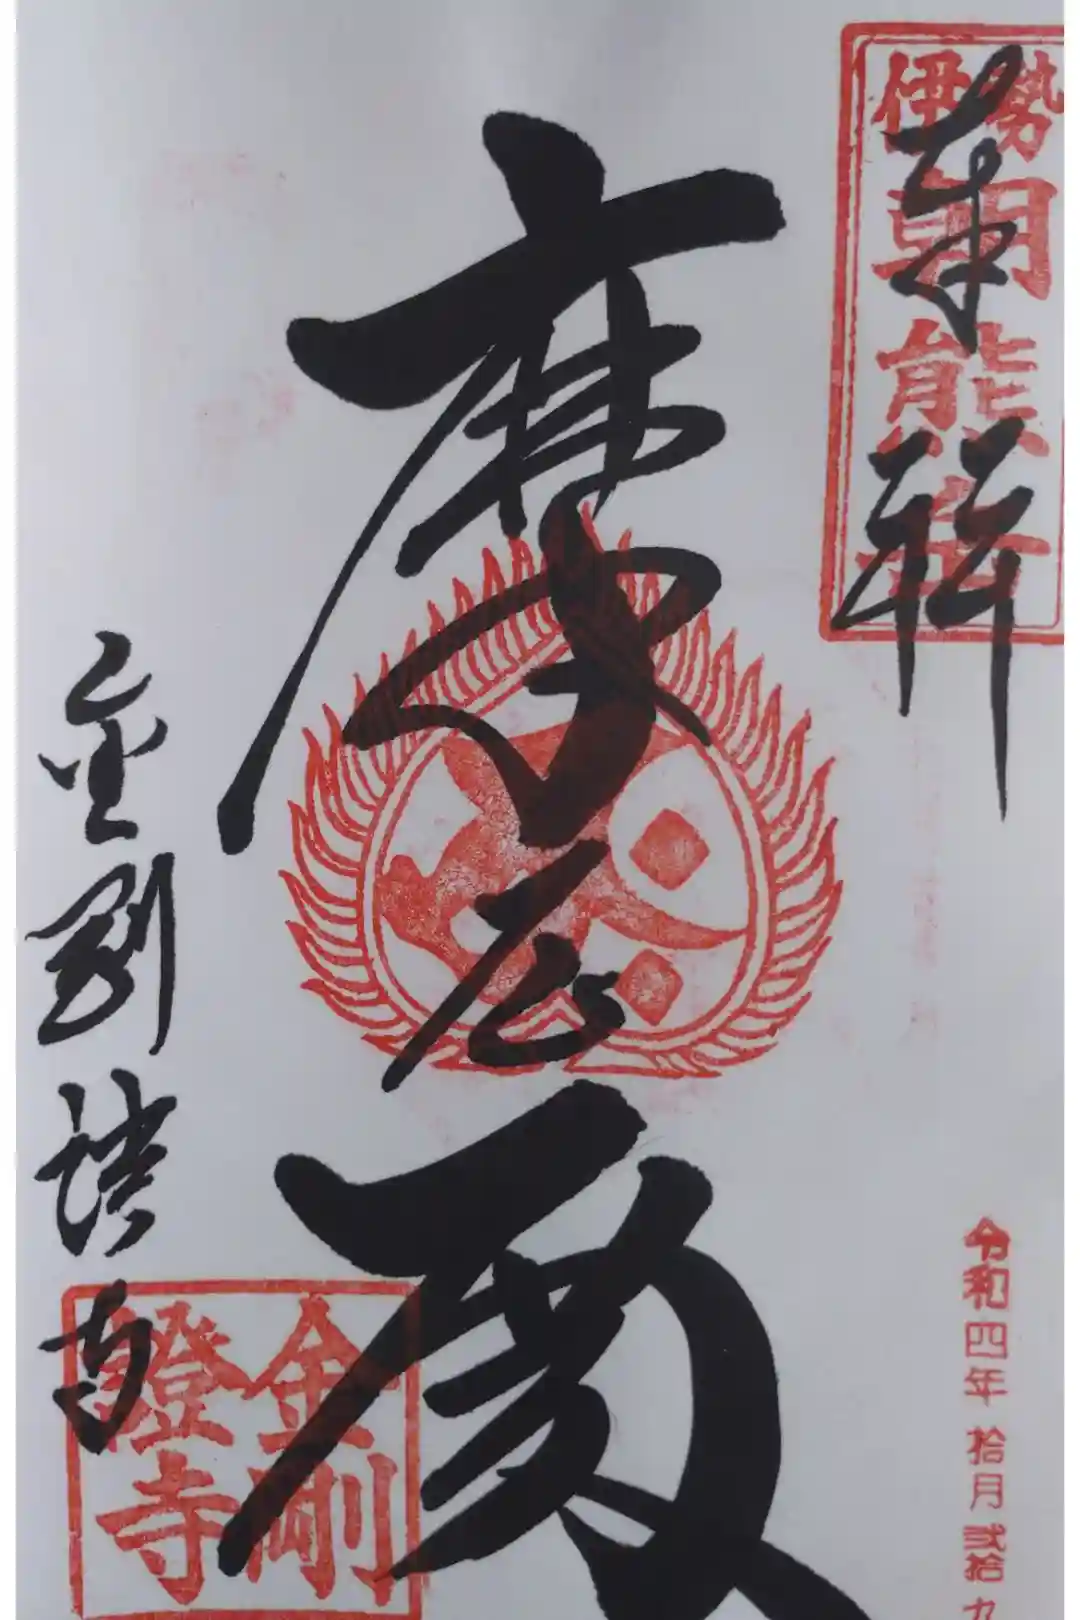 奉拝
伊勢
朝熊
摩尼殿
金剛證寺
金剛
證寺
令和四年拾月弐拾九